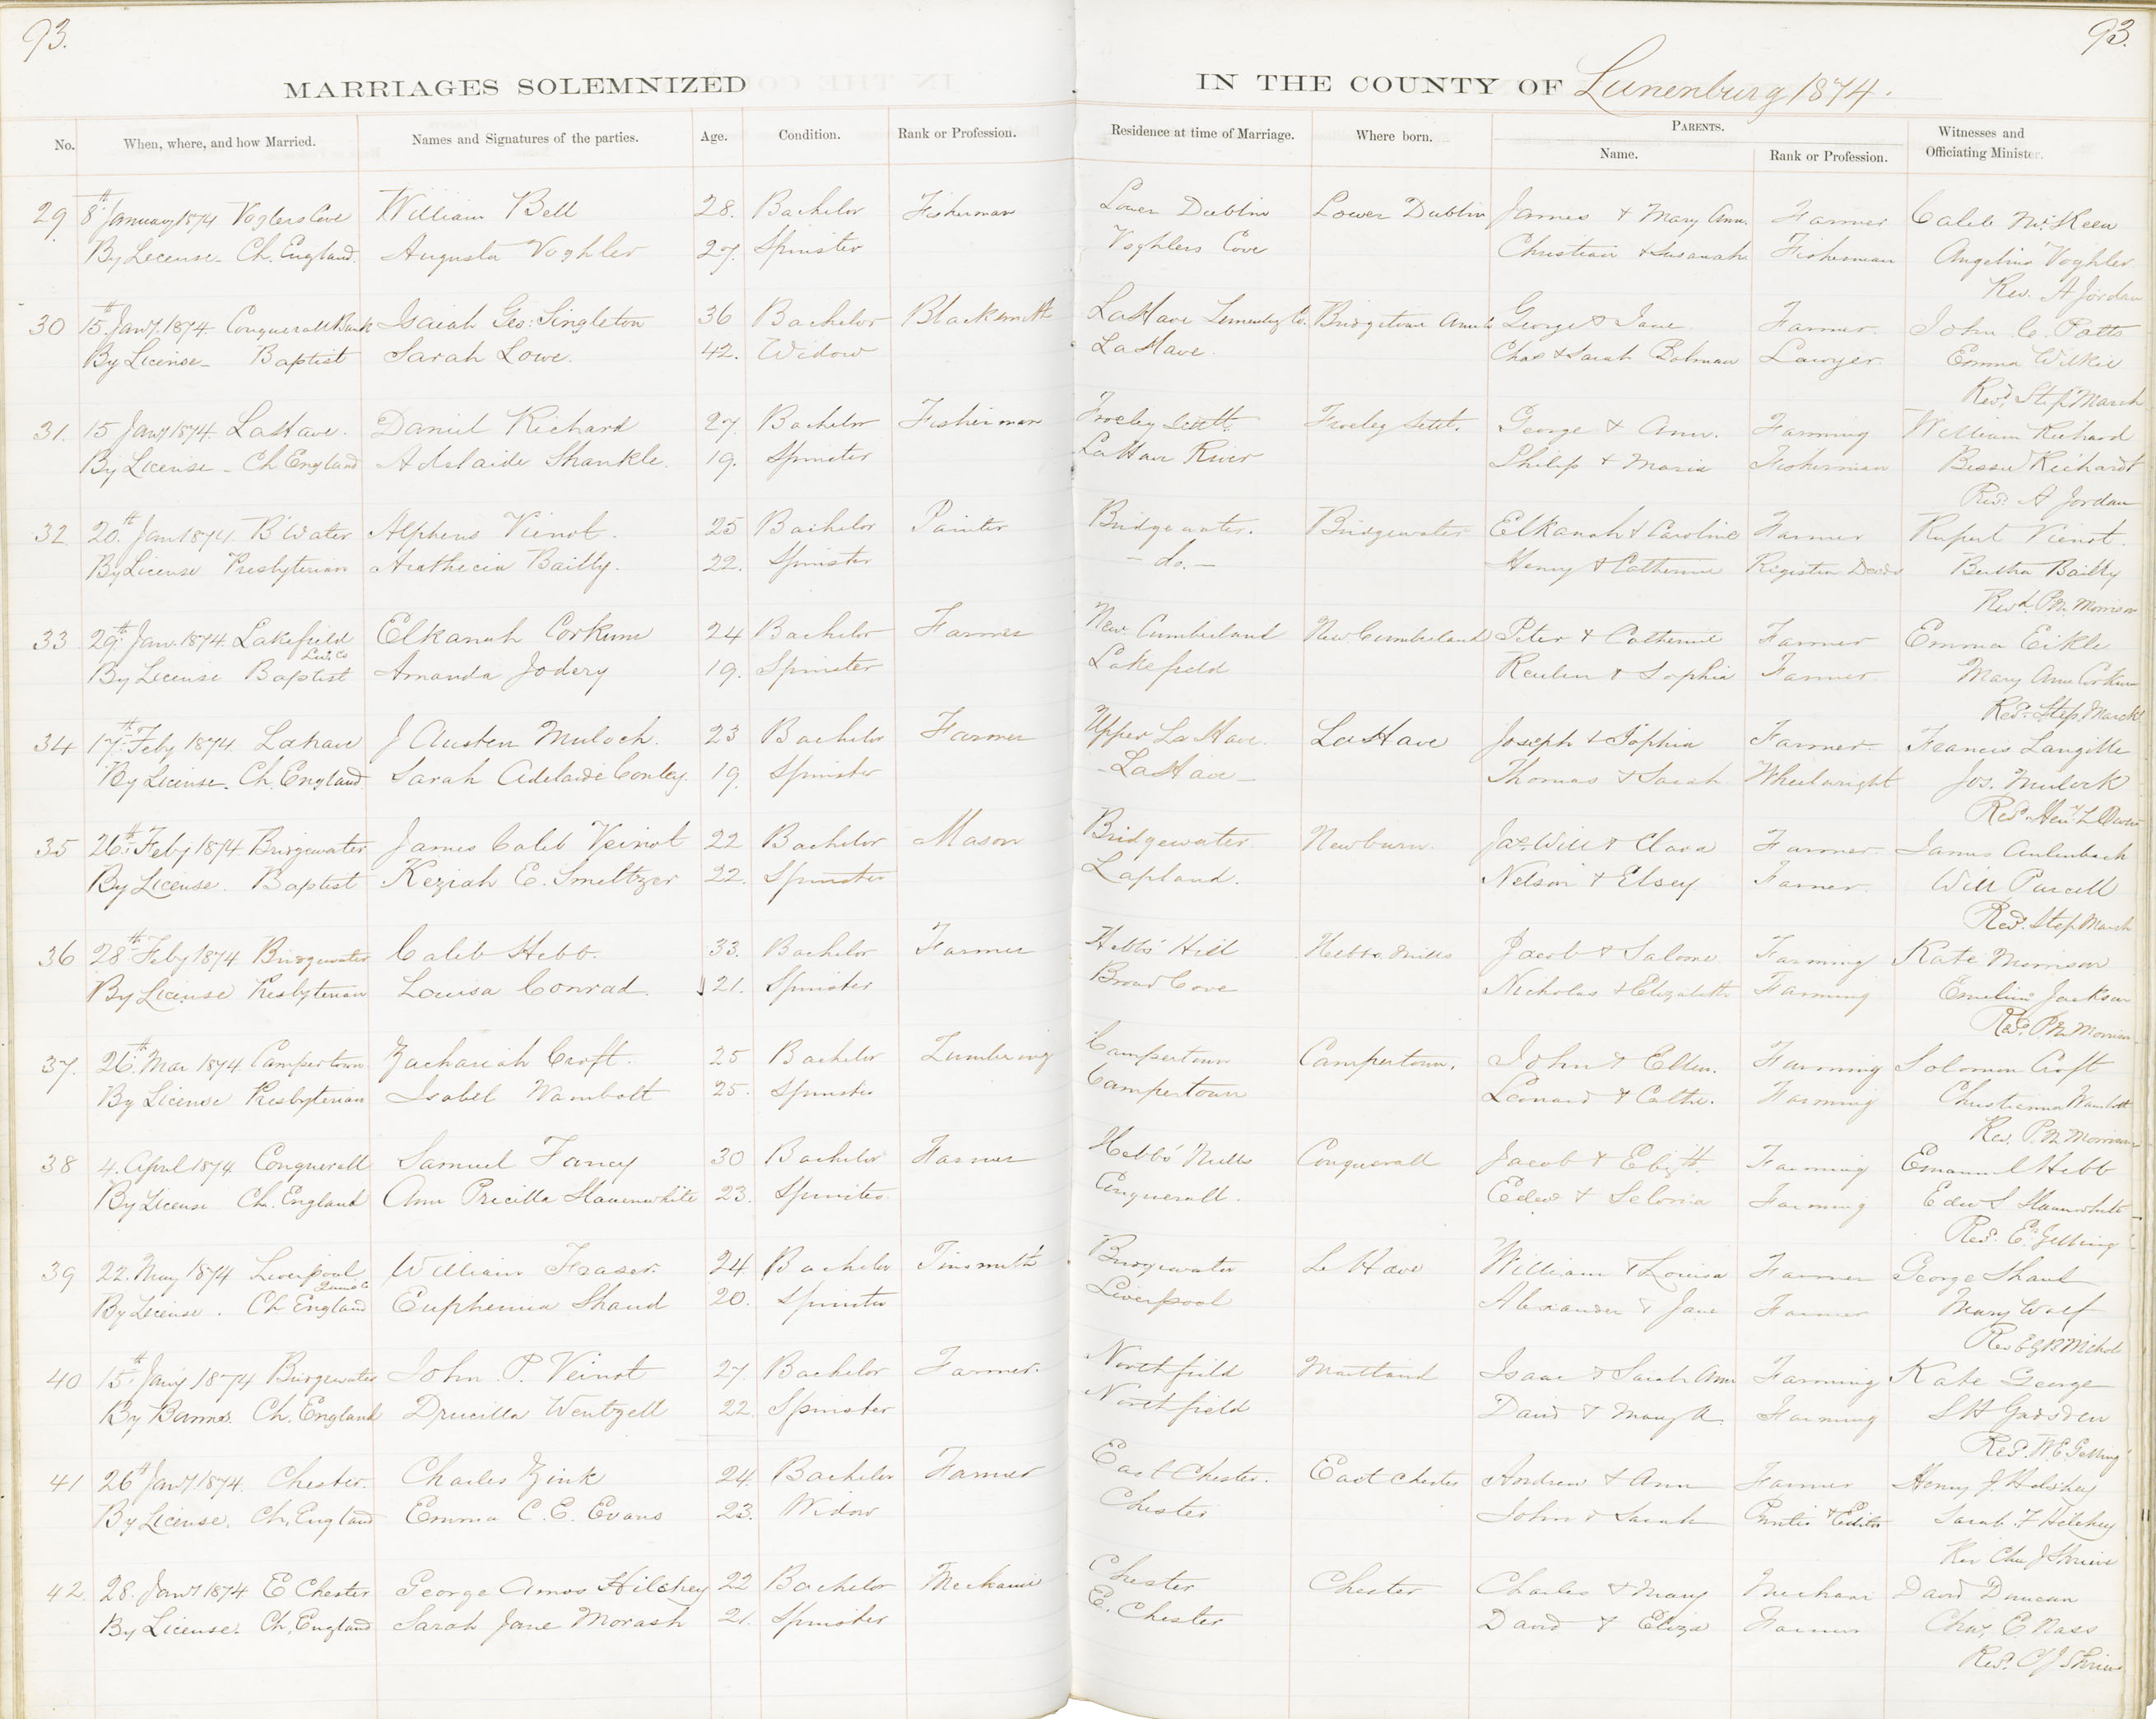 93.
93.
MARRIAGES SOLEMNIZED IN THE COUNTY OF Lunenburg 1874.
No. When, where, and how Married. Names and Signatures of the parties. Age. Condition. Rank or Profession. Residence at time of Marriage. Where born. PARENTS. Name. Rank or Profession. Witnesses and Officiating Minister.
29 8th January 1874 Voglers Cove William Bell 28. Bachelor Fisherman Lower Dublin Lower Dublin James & Mary Ann Farmer Caleb McKeen
By License. Ch. England. Augusta Voghler 27. Spinster Voghlers Cove Christian & Susanah Fisherman Angelina Voghler
Rev. A Jordan
30 15th Jany. 1874 Conquerall Bank Isaiah Geo: Singleton 36 Bachelor Blacksmith LaHave Lunenburg Co. Bridgetown George & Jane Farmer. John C. Potts
By License Baptist Sarah Lowe. 42. Widow LaHave. Chas & Sarah Lawyer Emma Wilkie
Revd. Step March
31. 15 Jany 1874 LaHave. Daniel Richard 27. Bachelor Fisherman George & Ann. Farming William Richard
By License Ch England Adelaide Shankle. 19. Spinster LaHave River Philip & Maria Fisherman Richardt
Revd. A Jordan
32. 20th Jan 1874 B'Water Alpheus Vienot. 25 Bachelor Painter Bridgewater. Bridgewater Elkanah & Caroline Farmer Rupert Vienot.
By License Presbyterian Bailly. 22. Spinster - do. - Henry & Catherine Register Deeds Bertha Bailly
Revd. P.M. Morrison
33 29th Jan. 1874 Lakefield Elkanah Corkum 24 Bachelor Farmer New Cumberland New Cumberland Peter & Catherine Farmer Emma Eikle
By License Baptist Amanda Jodery 19. Spinster Lakefield Reuben & Sophia Farmer Mary Ann Corkum
Revd. Step. March
34 17th Feby 1874 Lahave J Austen Muloch. 23 Bachelor Farmer Upper LaHave. LaHave Joseph & Sophia Farmer Francis Langille
By License. Ch. England Sarah Adelaide Conley. 19. Spinster LaHave Thomas & Sarah Wheelwright Jos. Mulock
Revd. Heny L Owen
35 26th Feby 1874 Bridgewater James Caleb Veinot 22 Bachelor Mason Bridgewater Newburn. Jas. Will & Clara Farmer. James Aulenbach
By License. Baptist Keziah E. Smeltzer 22. Spinster Lapland. Nelson & Elsey Farmer. Will Purcell
Revd. Step March
36 28th Feby 1874 Bridgewater Caleb Hebb. 33. Bachelor Farmer Hebbs' Hill Hebbs Mills Jacob & Salome Farming Kate Morrison
By License Presbyterian Louisa Conrad. 21. Spinster Broad Cove Nicholas & Elizabeth Farming Emeline Jackson
Revd. P.M. Morrison
37. 26th Mar 1874 Campertown Zachariah Croft. 25 Bachelor Lumbering Campertown Campertown. John & Ellen. Farming Solomon Croft
By License Presbyterian Isabel Wambolt 25. Spinster Campertown Leonard & Cathe. Farming Christianna Wambolt
Rev. P.M. Morrison
38 4. April 1874 Conquerall Samuel Fancy 30 Bachelor Farmer Hebbs' Mills Conquerall Jacob & Elizth. Farming Emanuel Hebb
By License Ch. England Ann Pricilla Hauenwhite 23. Spinster Conquerall. Edw & Farming Edw S
Revd. Gelling
39 22. May 1874 Liverpool William Fraser. 24 Bachelor Tinsmith Bridgewater LeHave William & Louisa Farmer George Shand
By License. Ch England Euphemia Shand 20. Spinster Liverpool Alexander & Jane Farmer Mary Wolf
Rev Nichols
40 15th Jany 1874 Bridgewater John P. Veinot 27. Bachelor Farmer. Northfield Maitland Isaac & Sarah Ann Farming Kate George
By Banns. Ch. England Drucilla Wentzell 22. Spinster Northfield David & Mary A. Farming S H Gadsden
Revd. W E Gelling
41 26th Jany 1874. Chester. Charles Zink 24. Bachelor Farmer East Chester. East Chester Andrew & Ann Farmer Henry J. Hilshey
By License. Ch. England Emma C. E. Evans 23. Widow Chester John & Sarah Printer & Editor Sarah F Hilchey
Rev Chas J Shrieve
42. 28. Jany 1874 E Chester George Amos Hilchey 22 Bachelor Mechanic Chester Chester Charles & Mary Mechanic David Duncan
By License. Ch. England Sarah Jane Morash 21. Spinster E. Chester David & Eliza Farmer Chas. E. Nass
Revd. C J Shrieve